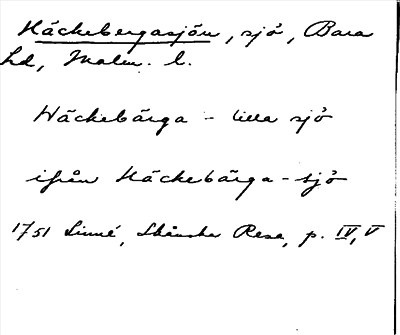 Häckebergasjön, sjö, Bara
hd, Malm. l.
Häckebärga - lilla sjö
ifrån Häckebärga - sjö
1751 Linné, Skånska Resa, p. IV, V